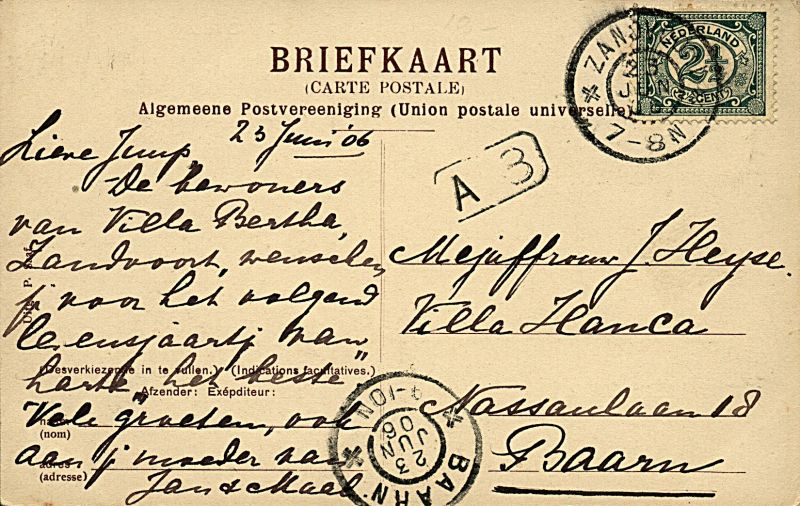 BRIEFKAART
(CARTE POSTALE)
Algemeene Postvereeniging (Union postale universelle)
NEDERLAND
2½
2½ CENT
7-8N
A 3
23 Juni 06
Lieve Jump,
De bewoners
van Villa Bertha,
Zandvoort, wenschen
j voor het volgend
levensjaartj van
harte "het beste"
Vele groeten, ook
aan j moeder van
Jan & Maal
(Desverkiezende in te vullen.) (Indications facultatives.)
Afzender: Expéditeur:
naam
(nom)
adres
(adresse)
Mejuffrouw J. Heyse.
Villa Hanca
Nassaulaan 18
Baarn
BAARN
23
JUN
06
9-10N